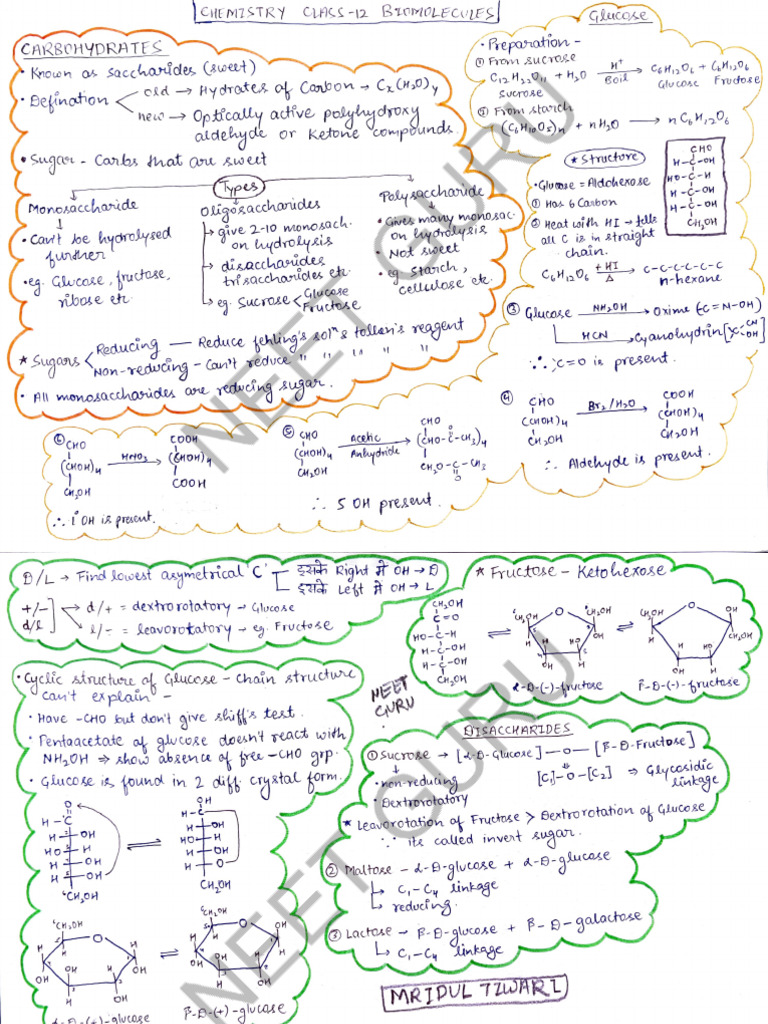 CHEMISTRY CLASS-12 BIOMOLECULES
CARBOHYDRATES
• Known as saccharides (sweet)
• Defination
old → Hydrates of Carbon → Cx(H2O)y
new → Optically active polyhydroxy
aldehyde or Ketone compounds.
• Sugar - Carbs that are sweet
Types
Monosaccharide
• Can't be hydrolysed
further
• eg. Glucose, fructose,
ribose etc.
Oligosaccharides
→ give 2-10 monosach.
on hydrolysis
→ disaccharides
trisaccharides etc.
→ eg. Sucrose < Glucose
Fructose
Polysaccharide
• Gives many monosac.
on hydrolysis
• Not sweet
• eg. Starch,
cellulose etc.
* Sugars
Reducing — Reduce fehling's solⁿ & tollen's reagent
Non-reducing - Can't reduce " " " " "
• All monosaccharides are reducing sugar.
Glucose
• Preparation -
① From sucrose
C12H22O11 + H2O H+ Boil → C6H12O6 + C6H12O6
Sucrose Glucose Fructose
② From starch
(C6H10O5)n + nH2O → n C6H12O6
* Structure
• Glucose = Aldohexose
① Has 6 Carbon
② Heat with HI → tells
all C is in straight
chain.
CHO
H-C-OH
HO-C-H
H-C-OH
H-C-OH
CH2OH
C6H12O6 +HI Δ → C-C-C-C-C-C
n-hexane
③ Glucose NH2OH → Oxime (C=N-OH)
HCN → Cyanohydrin [C CN OH]
∴ C=O is present.
④ CHO
(CHOH)4
CH2OH
Br2/H2O →
COOH
(CHOH)4
CH2OH
∴ Aldehyde is present.
⑤ CHO
(CHOH)4
CH2OH
Acetic
Anhydride
CHO
(CHO-C-CH3)4
CH2O-C-CH3
O
∴ 5 OH present.
CHO
(CHOH)4
CH2OH
HNO3 →
COOH
(CHOH)4
COOH
∴ 1° OH is present.
D/L → Find lowest asymetrical 'C'
इसके Right में OH → D
इसके Left में OH → L
+/-
d/l
d/+ = dextrorotatory - Glucose
l/- = leavorotatory - eg. Fructose
* Fructose - Ketohexose
CH2OH
C=O
HO-C-H
H-C-OH
H-C-OH
CH2OH
α-D-(-)-fructose
β-D-(-)-fructose
• Cyclic structure of Glucose - Chain structure
can't explain -
• Have -CHO but don't give shiff's test.
• Pentaacetate of glucose doesn't react with
NH2OH ⇒ show absence of free -CHO grp.
• Glucose is found in 2 diff. crystal form.
O
H-C
H OH
HO H
H OH
H OH
⁶CH2OH
OH
H-C
H OH
HO H
H OH
H O
CH2OH
α-D-(+)-glucose
β-D-(+)-glucose
NEET
GURU
DISACCHARIDES
① Sucrose → [α-D-Glucose]—O—[β-D-Fructose]
[C1]-O-[C2] ⇒ Glycosidic
linkage
• non-reducing
• Dextrorotatory
* Leavorotation of Fructose > Dextrorotation of Glucose
∵ its called invert sugar.
② Maltose - α-D-glucose + α-D-glucose
→ C1-C4 linkage
→ reducing.
③ Lactose - β-D-glucose + β-D-galactose
→ C1-C4 linkage
MRIDUL TIWARI
NEET GURU
NEET GURU